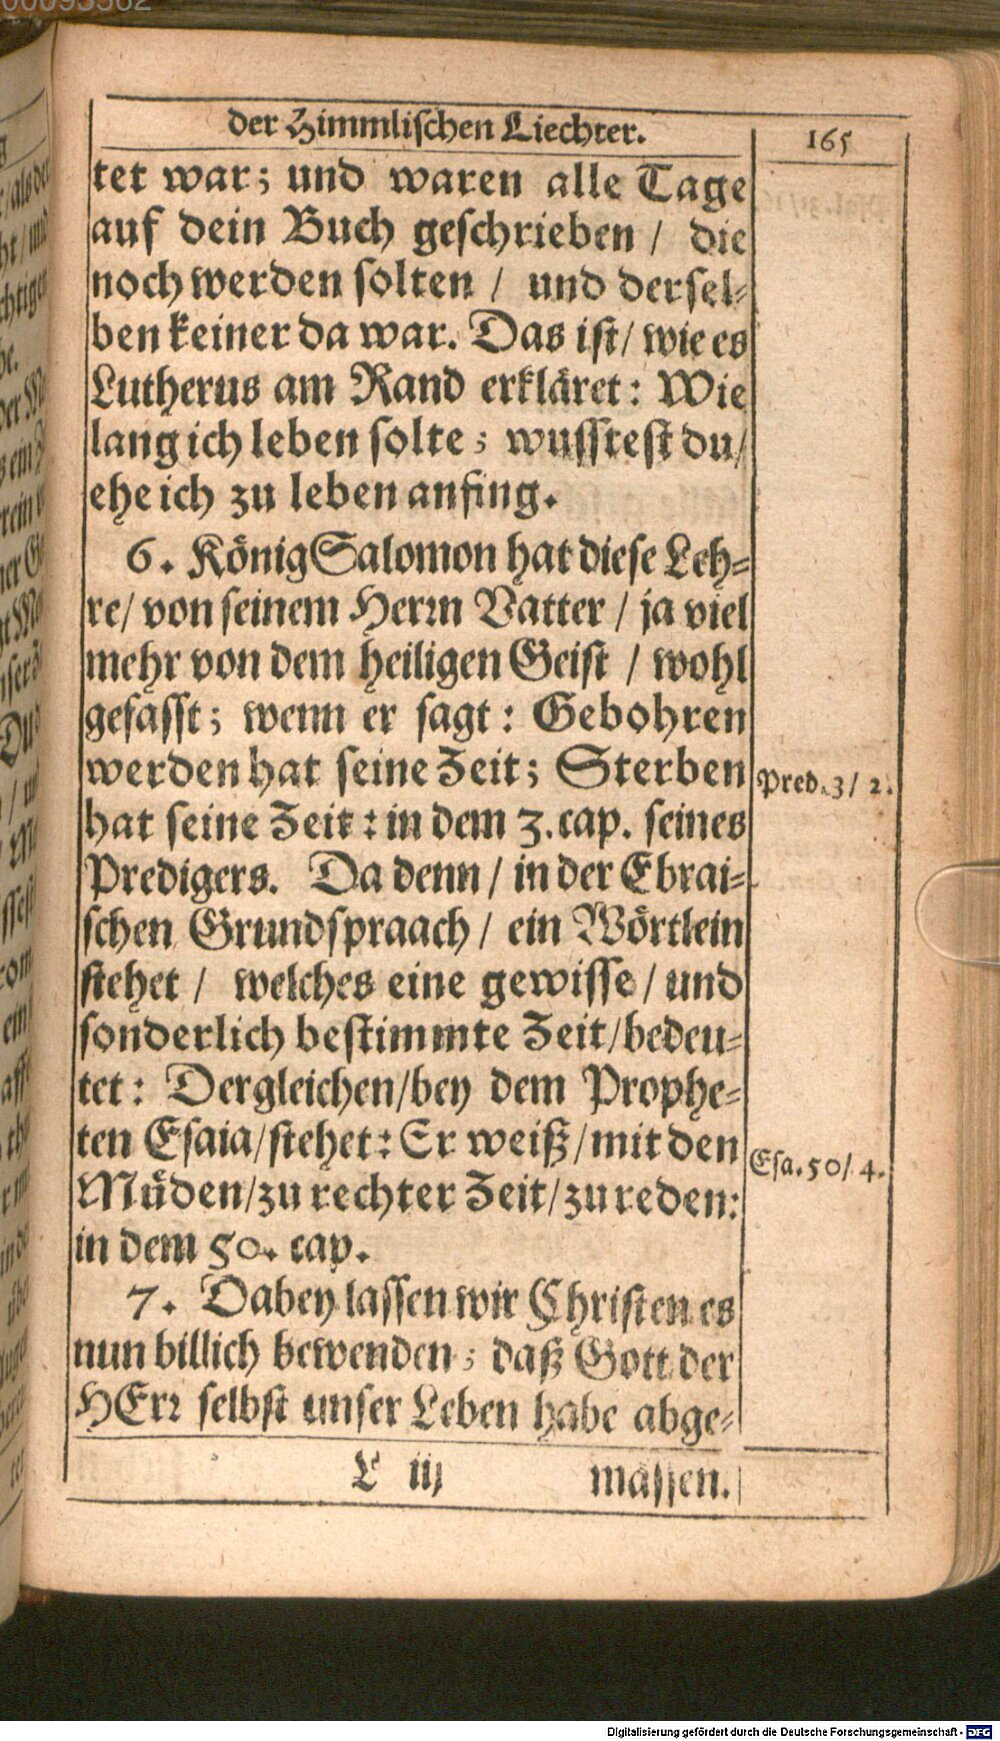 der Himmlischen Liechter.
165
tet war; und waren alle Tage
auf dein Buch geschrieben / die
noch werden solten / und dersel-
ben keiner da war. Das ist/ wie es
Lutherus am Rand erkläret: Wie
lang ich leben solte; wusstest du/
ehe ich zu leben anfing.
6. König Salomon hat diese Leh-
re/ von seinem Herrn Vatter / ja viel
mehr von dem heiligen Geist / wohl
gefasst; wenn er sagt: Gebohren
werden hat seine Zeit; Sterben
Pred. 3/ 2.
hat seine Zeit: in dem 3. cap. seines
Predigers. Da denn / in der Ebrai-
schen Grundspraach / ein Wörtlein
stehet / welches eine gewisse / und
sonderlich bestimmte Zeit/ bedeu-
tet: Dergleichen/ bey dem Prophe-
ten Esaia/ stehet: Er weiß/ mit den
Esa. 50/ 4.
Müden/ zu rechter Zeit/ zu reden:
in dem 50. cap.
7. Dabey lassen wir Christen es
nun billich bewenden; daß Gott der
HErr selbst unser Leben habe abge-
L iij
massen.
Digitalisierung gefördert durch die Deutsche Forschungsgemeinschaft - DFG